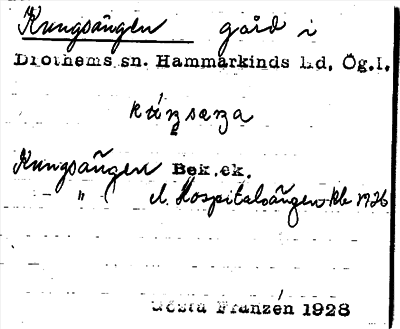 Kungsängen gård i
Drothems sn. Hammarkinds hd. Ög.l.
Kungsängen Bek.ek.
— " — ( el. Hospitalsängen Kb 1726
Gösta Franzén 1928